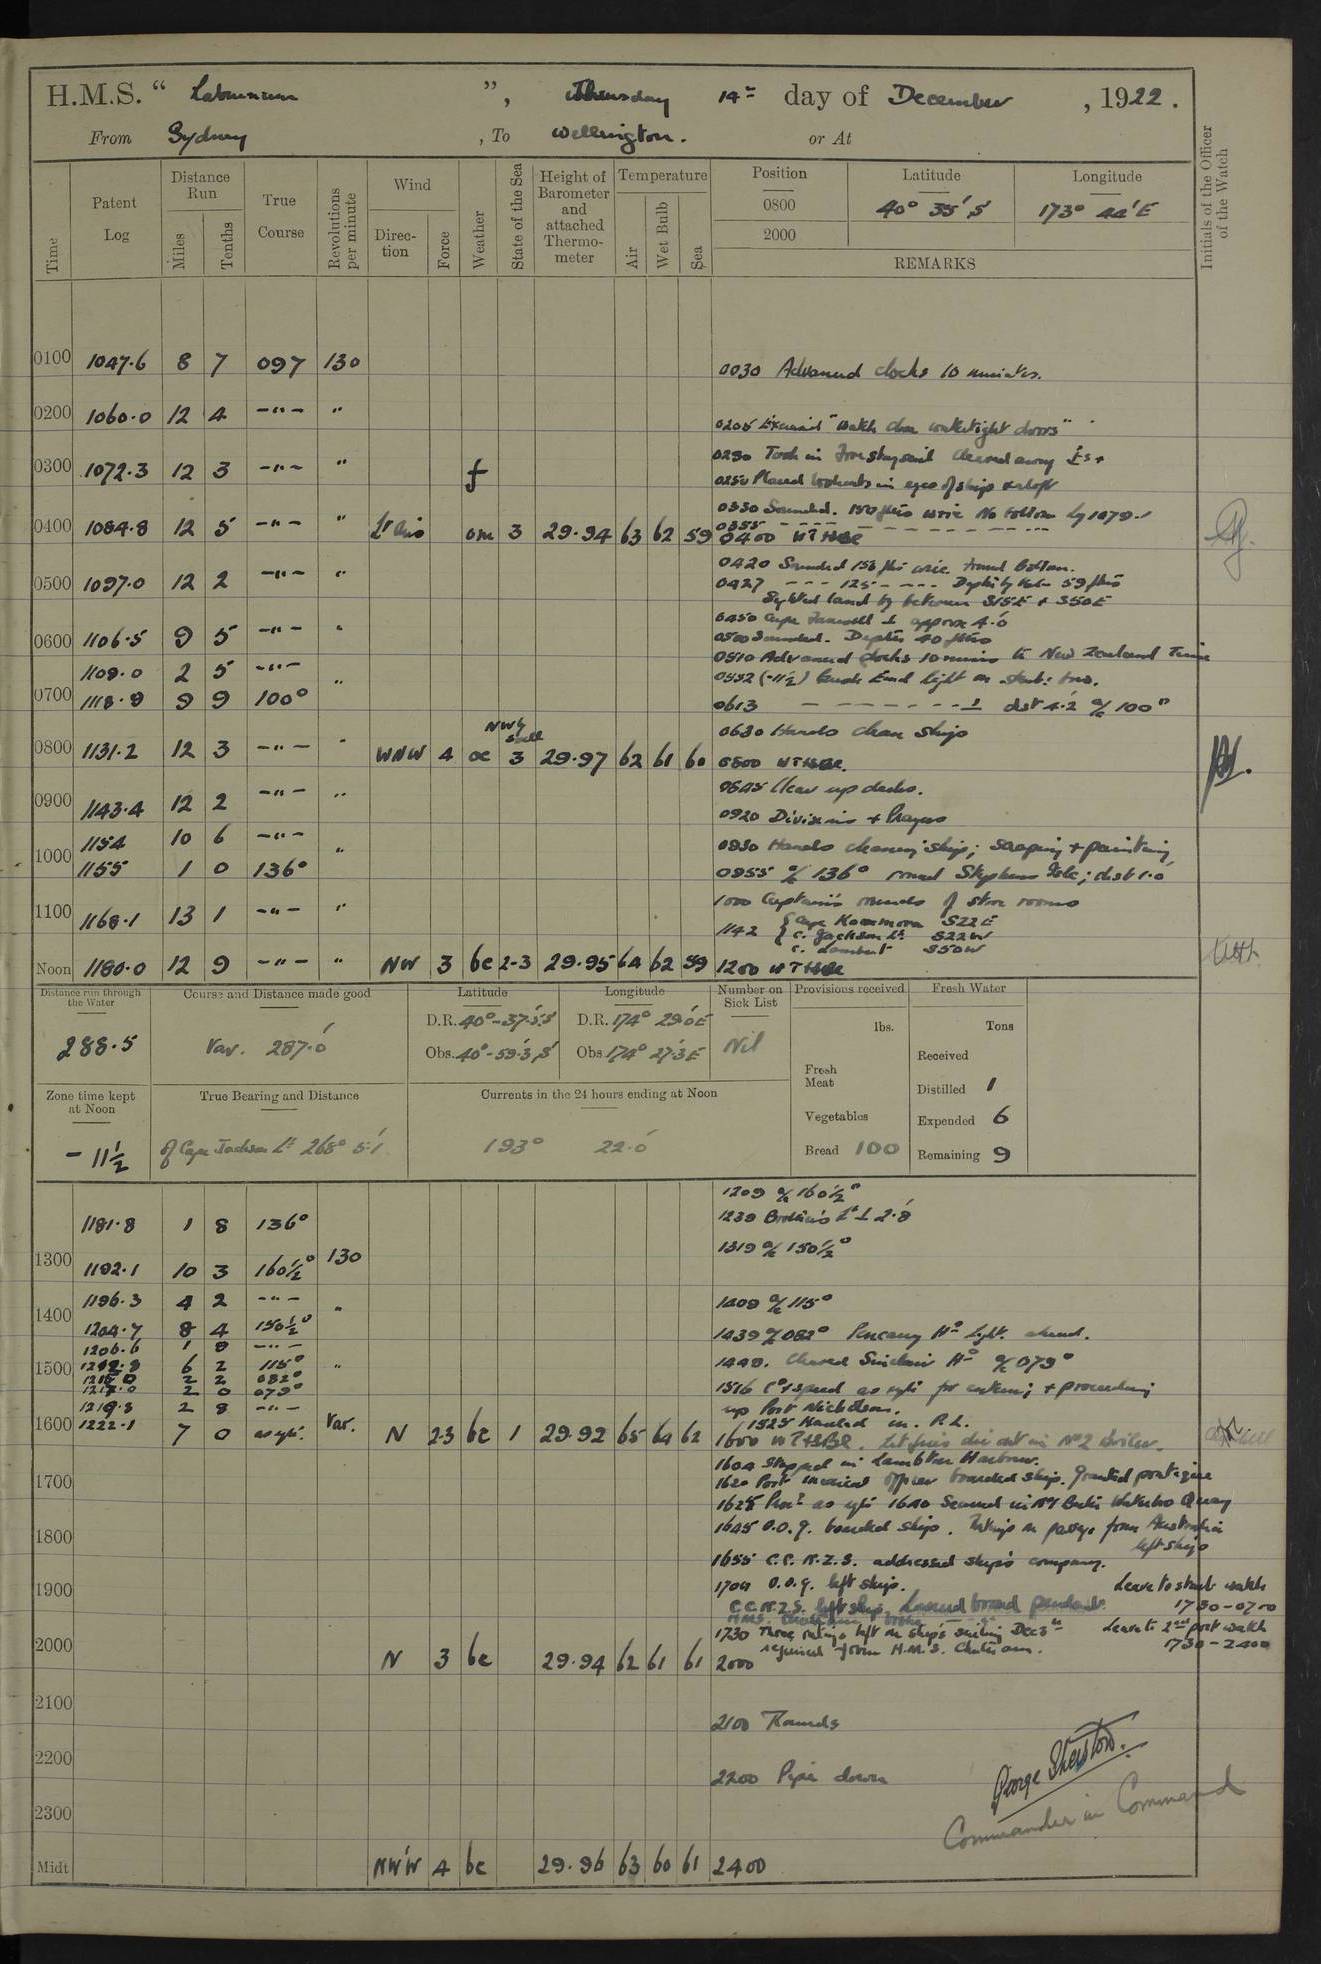 H.M.S. “ Laburnum ”, Thursday 14th day of December, 1922.
From Sydney, To Wellington. or At
Time
Patent Log
Distance Run
Miles
Tenths
True Course
Revolutions per minute
Wind
Direction
Force
Weather
State of the Sea
Height of Barometer and attached Thermometer
Temperature
Air
Wet Bulb
Sea
Position
0800
2000
Latitude
40° 35' S
Longitude
173° 44' E
REMARKS
Initials of the Officer of the Watch
0100 1047.6 8 7 097 130 0030 Advanced clocks 10 minutes.
0200 1060.0 12 4 -"- " 0205 "Watch close watertight doors"
0230 Took in Forestaysail Cleared away
0300 1072.3 12 3 -"- " f 0250 Placed lookouts in eyes of ship & aloft
0330 Sounded. 150 fms wire No bottom
0355
0400 1084.8 12 5 -"- " Lt airs om 3 29.94 63 62 59 0400
0420 Sounded 156 fms wire. Found bottom.
0500 1097.0 12 2 -"- " 0427 - - - 125 - - - Depth by 59 fms
Sighted land by between S15E + S50E
0450 Cape Farewell ⊥ approx 4.0
0600 1106.5 9 5 -"- " 0500 Sounded. Depth 40 fms
0510 Advanced clocks 10 mins to New Zealand Time
1109.0 2 5 -"- 0532 (-11½) Bush End light on
0700 1118.9 9 9 100° " 0613 - - - - ⊥ dist 4.2 a/c 100°
0630 Hands clean ship
0800 1131.2 12 3 -"- " WNW 4 oc 3 29.97 62 61 60 0800
0845 Clear up decks.
0900 1143.4 12 2 -"- " 0920 Divisions + Prayers
1154 10 6 -"- 0930 Hands cleaning ship; scraping + painting
1000 1155 1 0 136° " 0955 a/c 136° round Stephens Isle; dist 1.0
1000 Captain's rounds of store rooms
1100 1168.1 13 1 -"- " 1142 { Cape Koamaru S22E
C. Jackson Lt. S22W
C. Lambert S50W
Noon 1180.0 12 9 -"- " NW 3 bc 2-3 29.95 64 62 59 1200
Distance run through the Water
288.5
Course and Distance made good
Var. 287.0
Latitude
D.R. 40°-37.5 S
Obs. 40°-59.3 S
Longitude
D.R. 174° 29.0 E
Obs. 174° 27.3 E
Number on Sick List
Nil
Provisions received
lbs.
Fresh Meat
Vegetables
Bread 100
Fresh Water
Tons
Received
Distilled 1
Expended 6
Remaining 9
Zone time kept at Noon
- 11½
True Bearing and Distance
of Cape Jackson Lt 268° 5.1
Currents in the 24 hours ending at Noon
193° 22.0
1209 a/c 160½°
1181.8 1 8 136° 1239 Brothers Lt ⊥ 2.8
1300 130 1319 a/c 150½°
1192.1 10 3 160½°
1196.3 4 2 -"- 1409 a/c 115°
1400 "
1204.7 8 4 150½° 1439 a/c 082° Pencarrow Hd light ahead.
1206.6 1 9 -"-
1500 1212.8 6 2 115° " 1448. Cleared Sinclair Hd a/c 079°
1215.0 2 2 082°
1217.0 2 0 079° 1516 Co & speed as req for entering + proceeding
1219.8 2 8 -"- up Port Nicholson.
1525 Hauled in P.L.
1600 1222.1 7 0 as req. Var. N 2-3 bc 1 29.92 65 64 62 1600 Let fires die out in No 2 boiler.
1604 Stopped in Lambton Harbour.
1620 Port medical officer boarded ship. Granted pratique
1700
1628 Proc as req 1640 Secured Waterloo Quay
1645 O.O.G. boarded ship. Ratings on passage from Australia left ship
1800
1655 C.C. N.Z.S. addressed ship's company.
1704 O.O.G. left ship. Leave to starb watch 1730-0700
1900
C.C.N.Z.S. left ship. Lowered broad pendant.
1730 Three ratings left on ship's sailing Dec 5th Leave to 2nd port watch 1730-2400
rejoined from H.M.S. Chatham.
2000 N 3 bc 29.94 62 61 61 2000
2100
2100 Rounds
2200
2200 Pipe down
George Sherston.
Commander in Command
2300
Midt NW'W 4 bc 29.96 63 60 61 2400